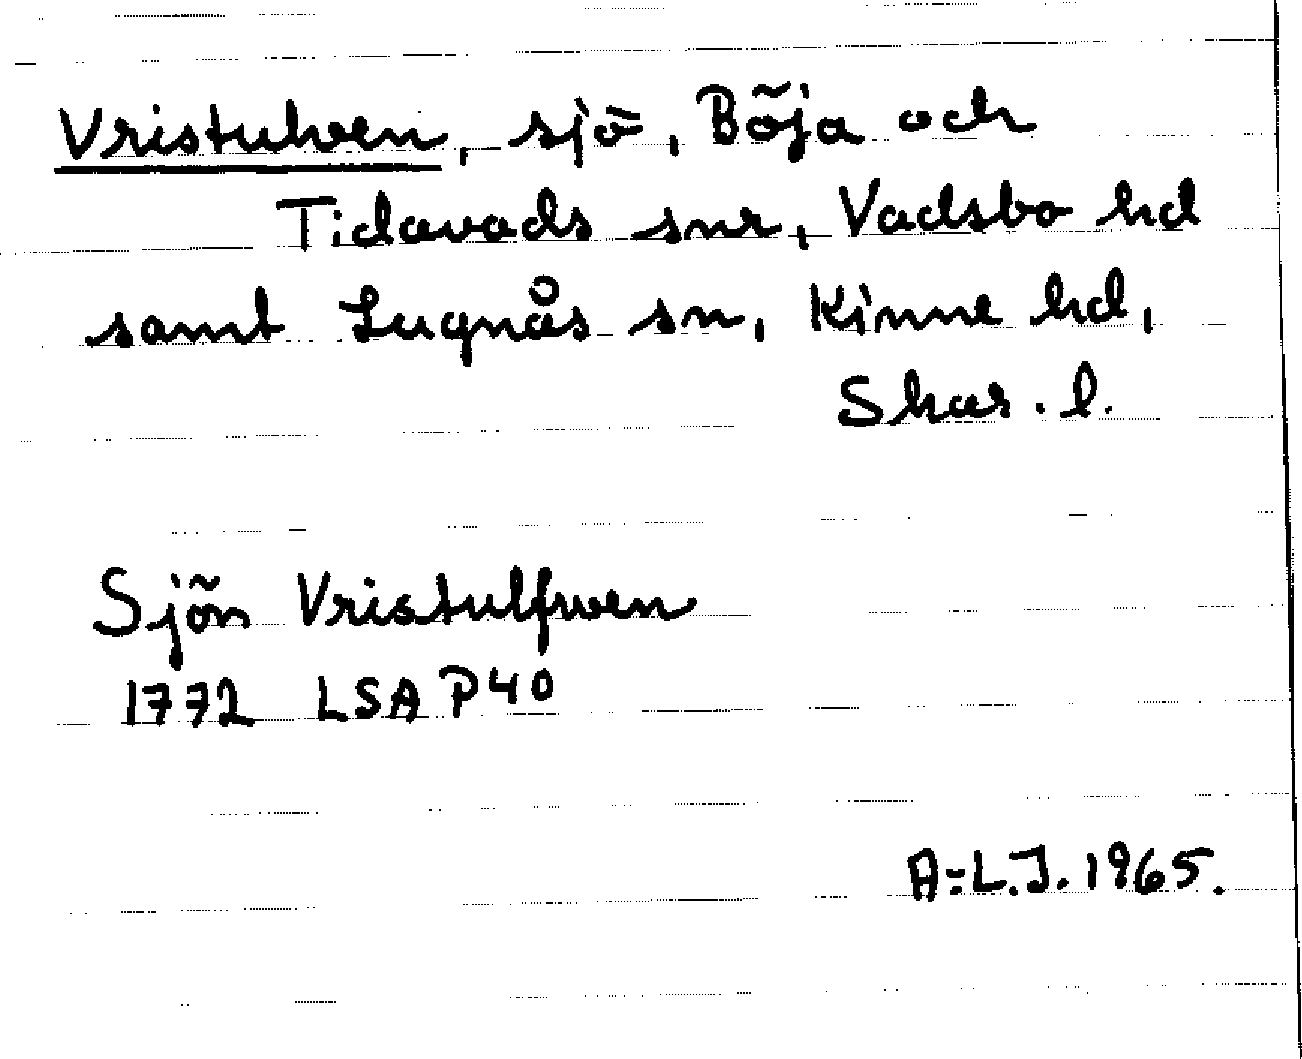 Vristulven, sjö, Böja och
Tidavads snr, Vadsbo hd
samt Lugnås sn, Kinne hd,
Skar. l.
Sjön Vristulfwen
1772 LSA P40
A-L.J. 1965.